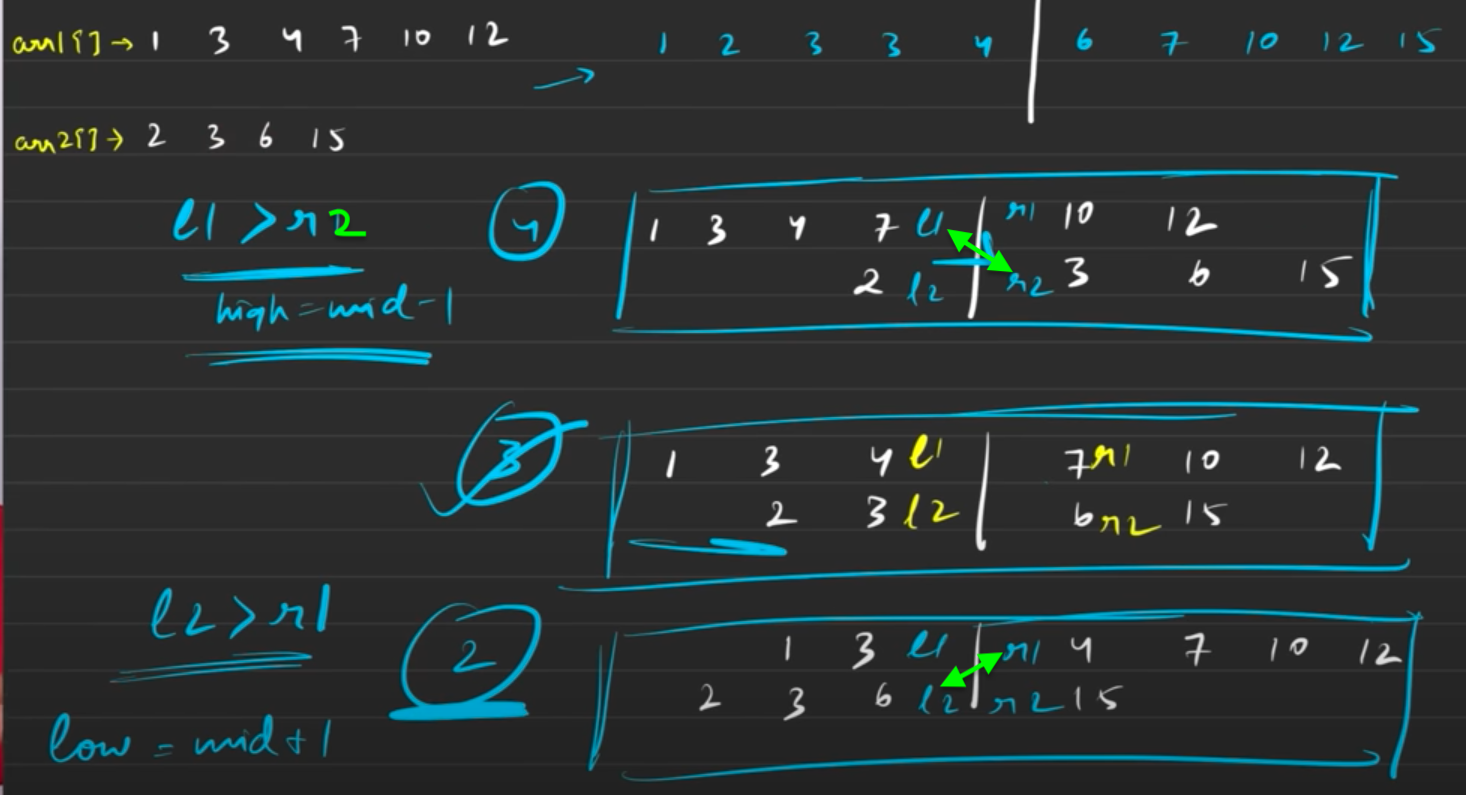 arr1[] → 1 3 4 7 10 12
→ 1 2 3 3 4 | 6 7 10 12 15
arr2[] → 2 3 6 15
l1 > r2
high = mid - 1
4
1 3 4 7 l1 | r1 10 12
2 l2 | r2 3 6 15
3
1 3 4 l1 | 7 r1 10 12
2 3 l2 | 6 r2 15
l2 > r1
low = mid + 1
2
1 3 l1 | r1 4 7 10 12
2 3 6 l2 | r2 15